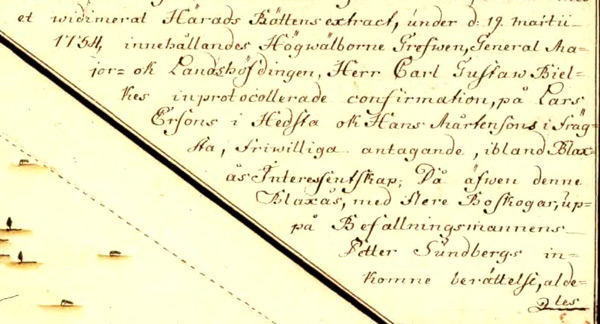 et widimerat Härads Rättens extract, under d: 19. martii
1754, innehållandes Högwälborne Grefwen, General Ma-
jor= ok Landshöfdingen, Herr Carl Gustaw Biel-
kes inprotocollerade confirmation, på Lars
Ersons i Hedsta ok Hans Mårtensons i Träg-
sta, friwilliga antagande, ibland Blax-
ås Interessentskap; Då äfwen denne
Blaxås, med flere Boskogar, up-
på Befallningsmannens
Petter Sundbergs in-
komne berättelse, alde-
les